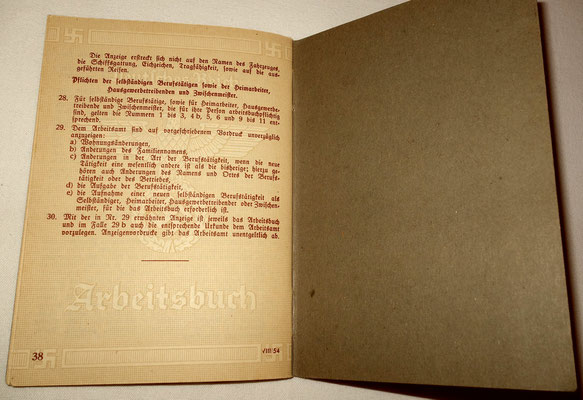 Die Anzeige erstreckt sich nicht auf den Namen des Fahrzeuges,
die Schiffsgattung, Eichzeichen, Tragfähigkeit, sowie auf die aus-
geführten Reisen.
Pflichten der selbständigen Berufstätigen sowie der Heimarbeiter,
Hausgewerbetreibenden und Zwischenmeister.
28. Für selbständige Berufstätige, sowie für Heimarbeiter, Hausgewerbe-
treibende und Zwischenmeister, die für ihre Person arbeitsbuchpflichtig
sind, gelten die Nummern 1 bis 3, 4 b, 5, 6 und 9 bis 11 ent-
sprechend.
29. Dem Arbeitsamt sind auf vorgeschriebenem Vordruck unverzüglich
anzuzeigen:
a) Wohnungsänderungen,
b) Änderungen des Familiennamens,
c) Änderungen in der Art der Berufstätigkeit, wenn die neue
Tätigkeit eine wesentlich andere ist als die bisherige; hierzu ge-
hören auch Änderungen des Namens und Ortes der Berufs-
tätigkeit oder des Betriebes,
d) die Aufgabe der Berufstätigkeit,
e) die Aufnahme einer neuen selbständigen Berufstätigkeit als
Selbständiger, Heimarbeiter, Hausgewerbetreibender oder Zwischen-
meister, für die das Arbeitsbuch erforderlich ist.
30. Mit der in Nr. 29 erwähnten Anzeige ist jeweils das Arbeitsbuch
und im Falle 29 b auch die entsprechende Urkunde dem Arbeitsamt
vorzulegen. Anzeigenvordrucke gibt das Arbeitsamt unentgeltlich ab.
Arbeitsbuch
38
VIII 54